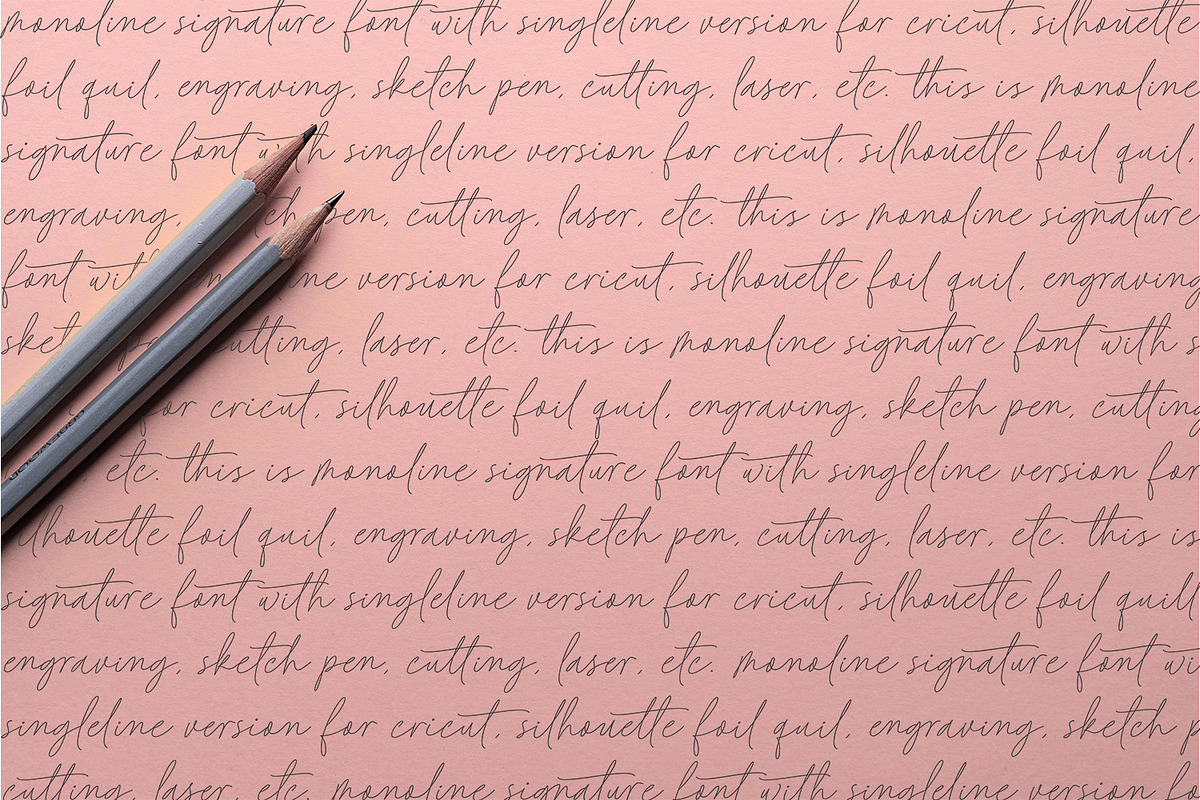 monoline signature font with singleline version for cricut, silhouette
foil quil, engraving, sketch pen, cutting, laser, etc. this is monoline
signature font with singleline version for cricut, silhouette foil quil,
engraving, pen, cutting, laser, etc. this is monoline signature
font with version for cricut, silhouette foil quil, engraving
cutting, laser, etc. this is monoline signature font with s
for cricut, silhouette foil quil, engraving, sketch pen, cutting
etc. this is monoline signature font with singleline version for
silhouette foil quil, engraving, sketch pen, cutting, laser, etc. this is
signature font with singleline version for cricut, silhouette foil quill
engraving, sketch pen, cutting, laser, etc. monoline signature font wi
singleline version for cricut, silhouette foil quil, engraving, sketch p
cutting, laser, etc. monoline signature font with singleline version fo